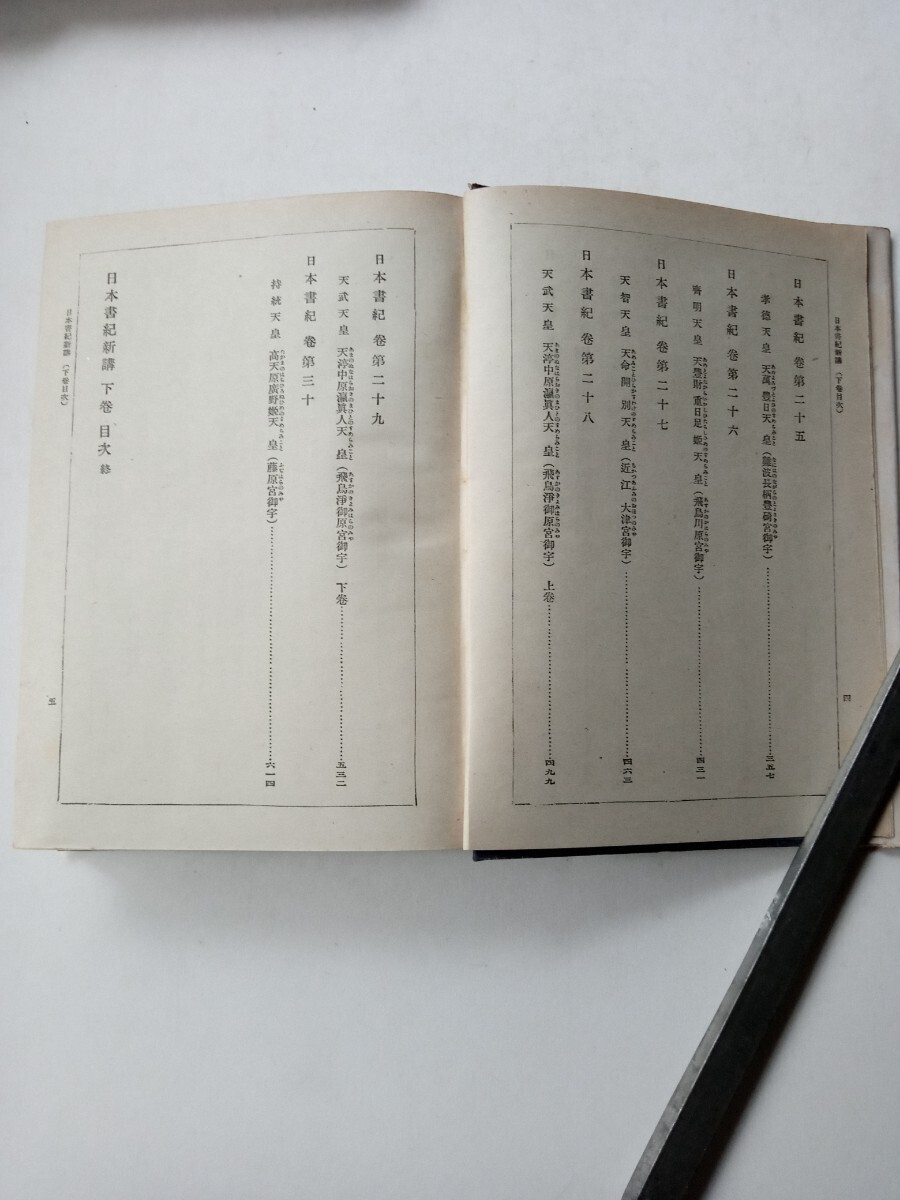 日本書紀新講 (下卷目次)
四
日本書紀 卷第二十五
孝德天皇 天萬豐日天皇(難波長柄豐碕宮御宇)……三五七
日本書紀 卷第二十六
齊明天皇 天豐財重日足姬天皇(飛鳥川原宮御宇)……四三一
日本書紀 卷第二十七
天智天皇 天命開別天皇(近江大津宮御宇)……四六三
日本書紀 卷第二十八
天武天皇 天渟中原瀛眞人天皇(飛鳥淨御原宮御宇) 上卷……四九九
日本書紀 卷第二十九
天武天皇 天渟中原瀛眞人天皇(飛鳥淨御原宮御宇) 下卷……五三二
日本書紀 卷第三十
持統天皇 高天原廣野姬天皇(藤原宮御宇)……六一四
日本書紀新講 下卷 目次 終
日本書紀新講 (下卷目次)
五